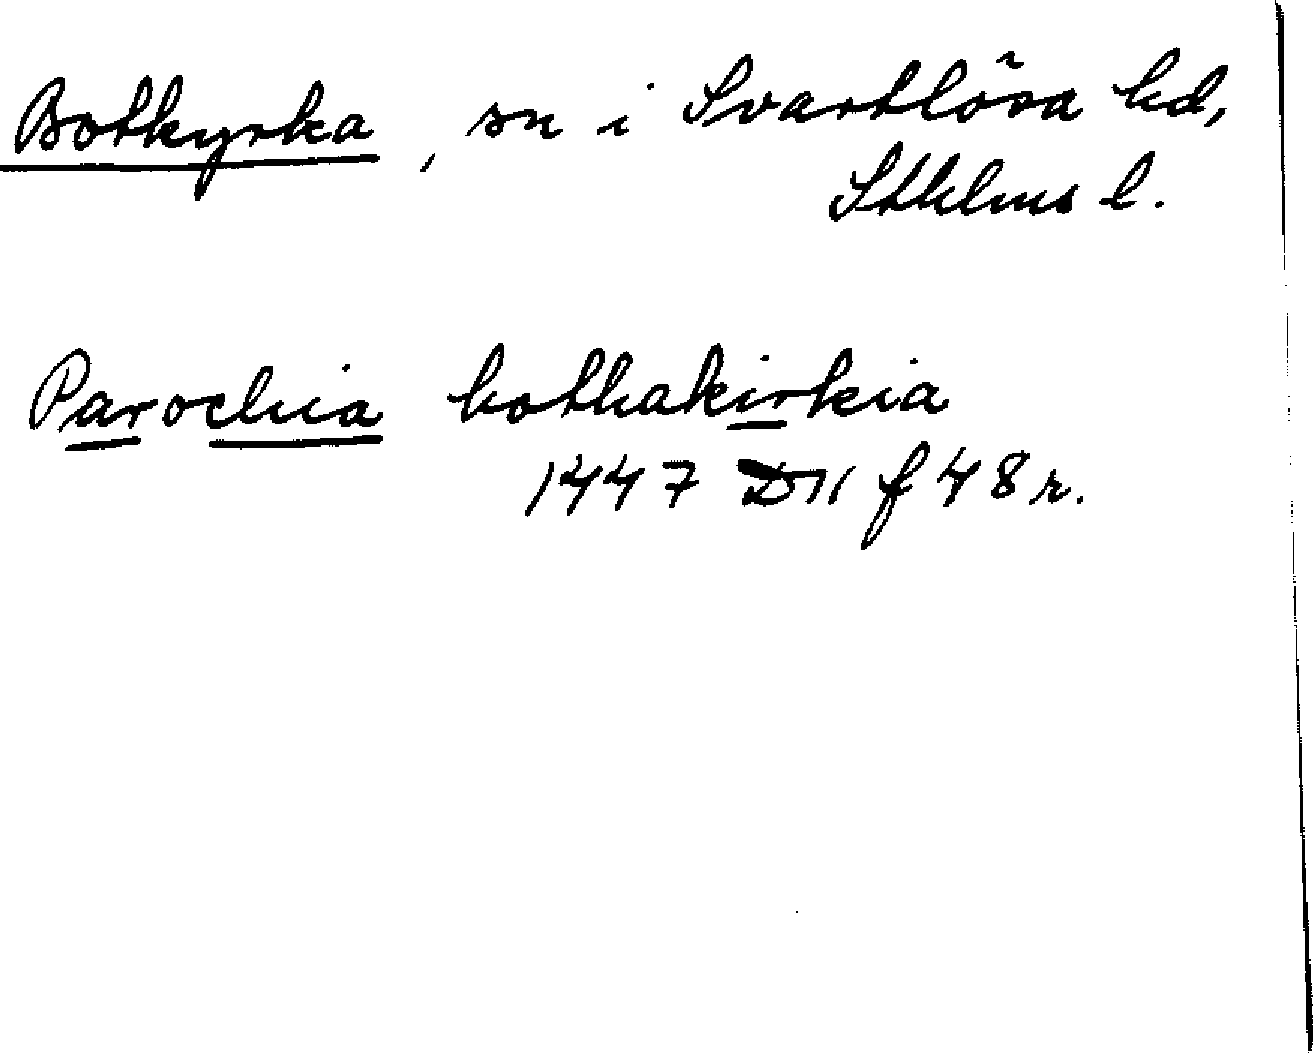 Botkyrka, sn i Svartlösa hd,
Sthlms l.
Parochia bothakirkia
1447 D11 f 48 r.